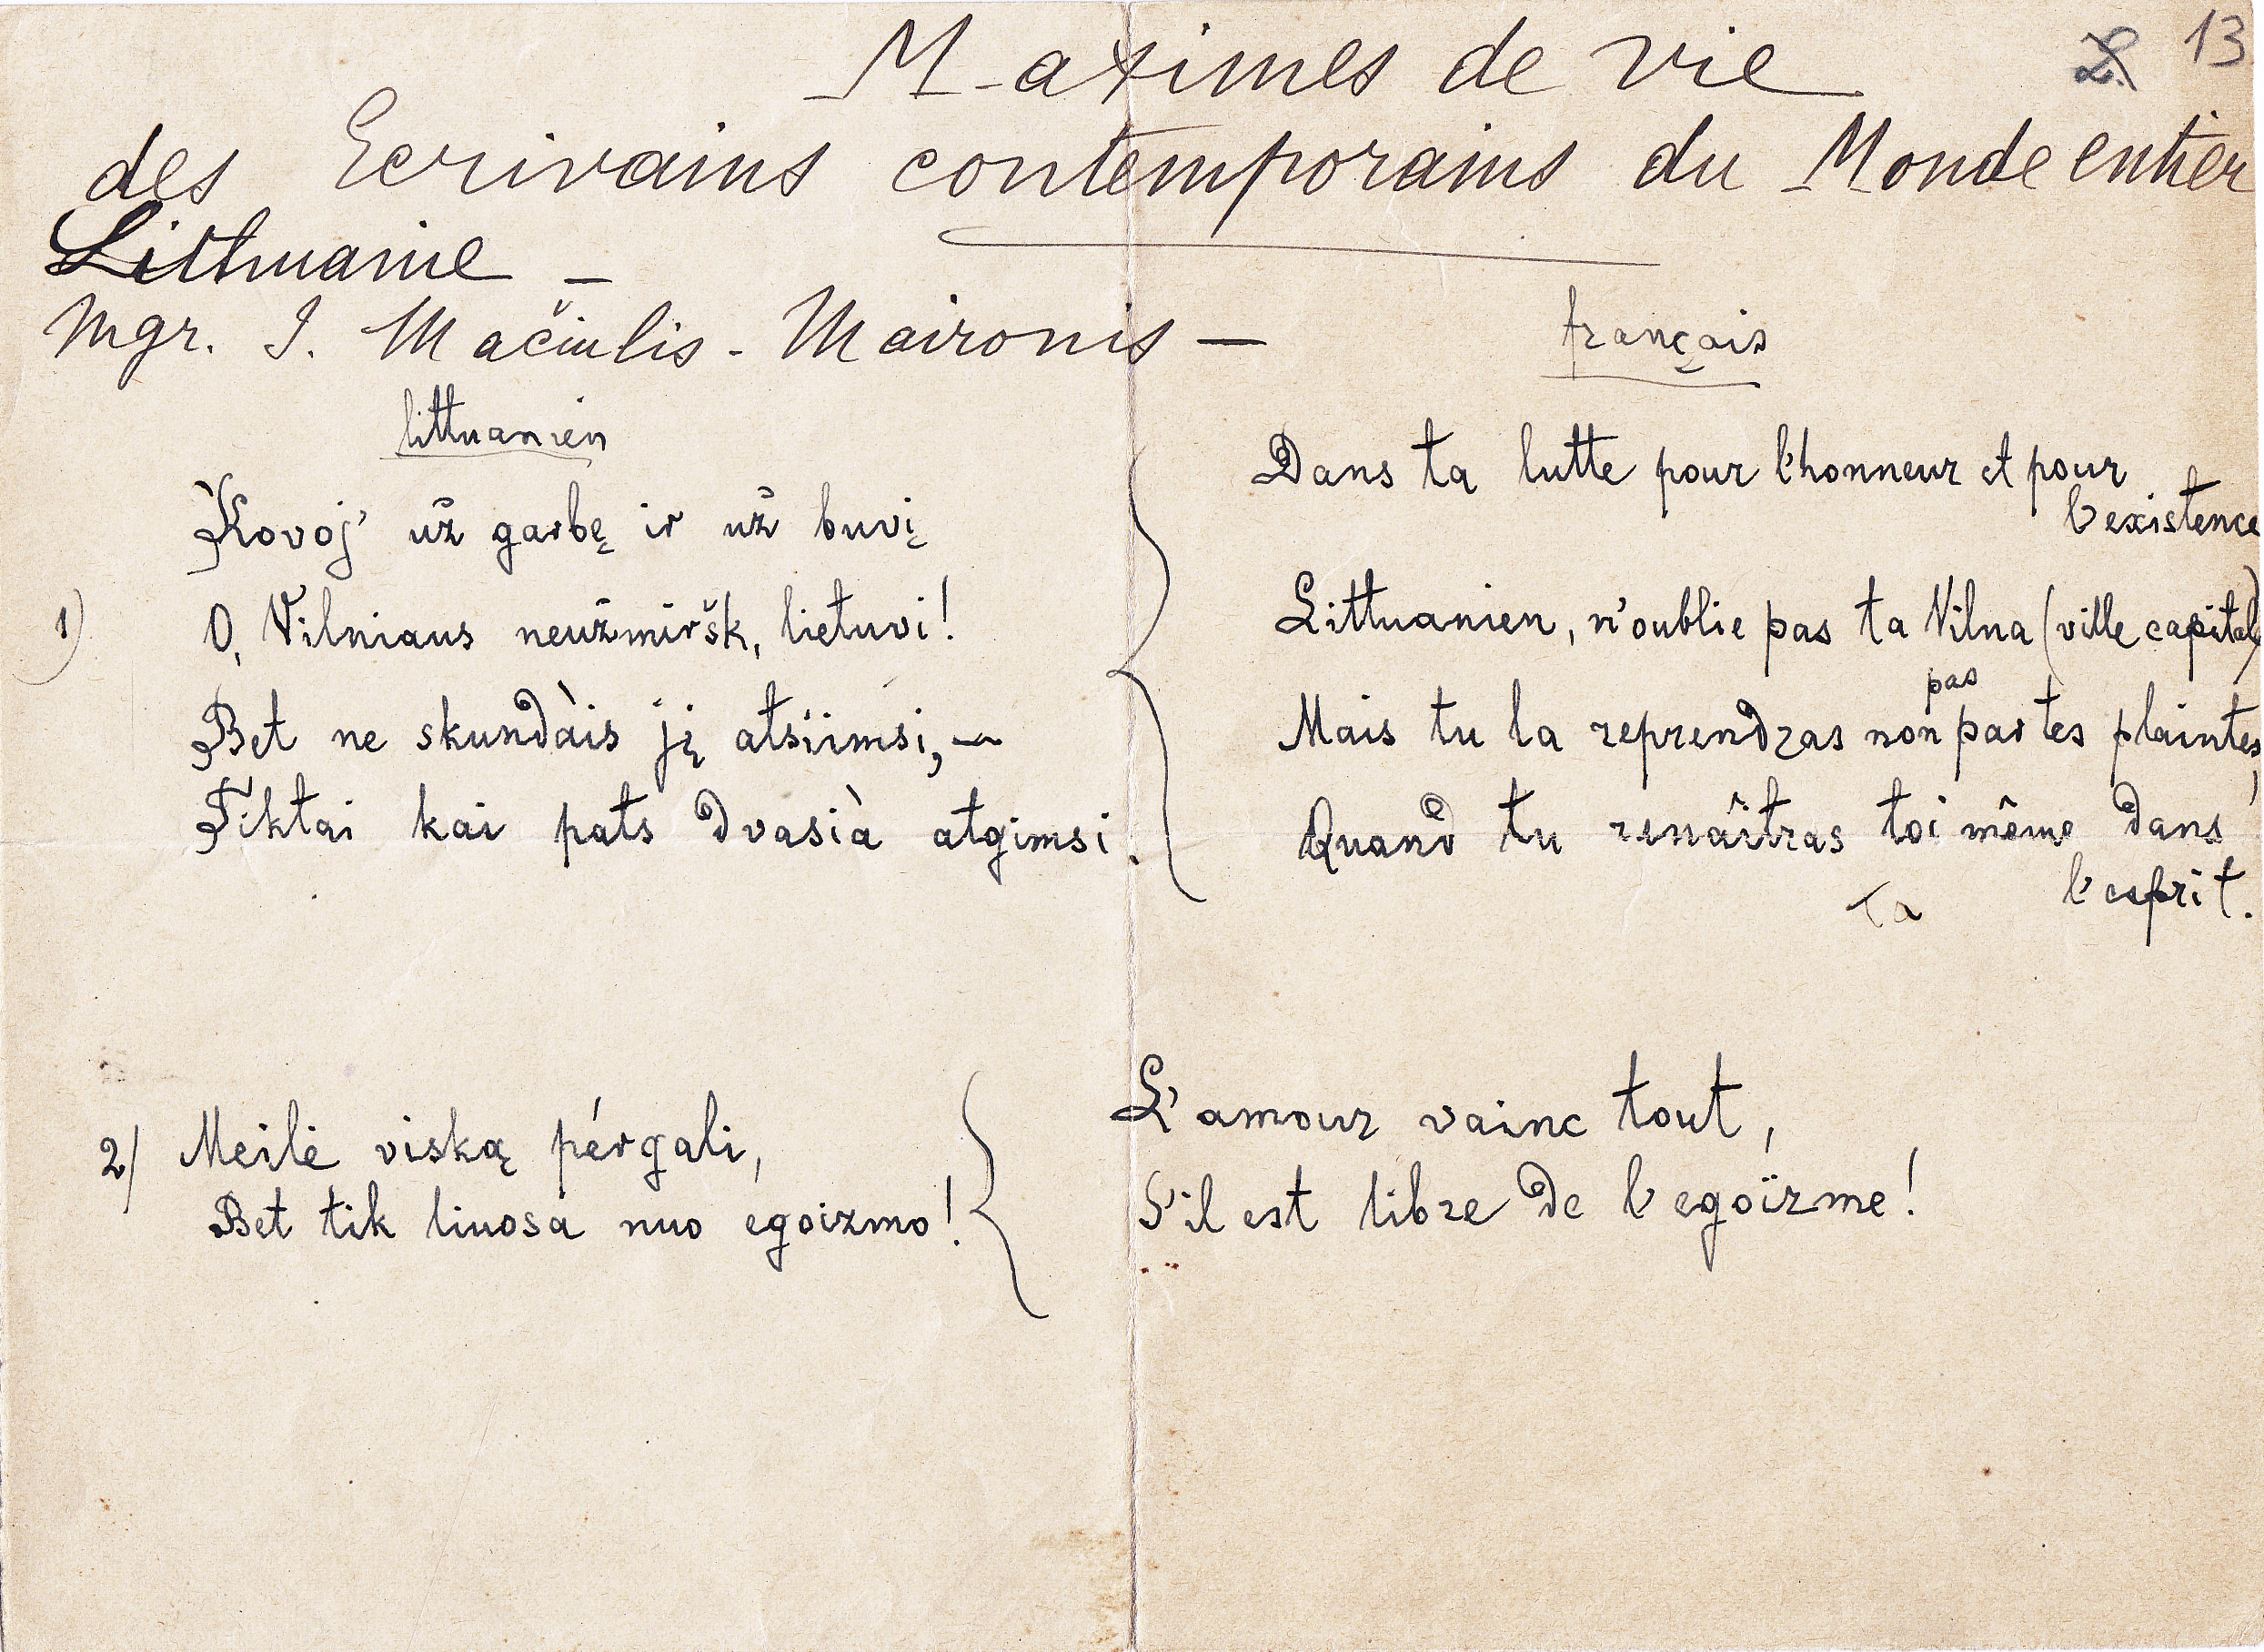 Maximes de vie
13
des Ecrivains contemporains du Monde entier
Lithuanie –
Mgr. J. Mačiulis - Maironis –
littuanien
Kovoj' už garbę ir už buvį
1) O, Vilniaus neužmiršk, lietuvi!
Bet ne skundàis jį atsiimsi, –
Tiktai kai pats dvasià atgimsi.
français
Dans ta lutte pour l'honneur et pour
l'existence
Littuanien, n'oublie pas ta Vilna (ville capitale)
pas
Mais tu la reprendras non par tes plaintes,
Quand tu renaîtras toi même dans
Ta l'esprit.
2) Meilė viską pérgali,
Bet tik liuosa nuo egoizmo!
L'amour vainc tout,
S'il est libre de l'egoïzme!